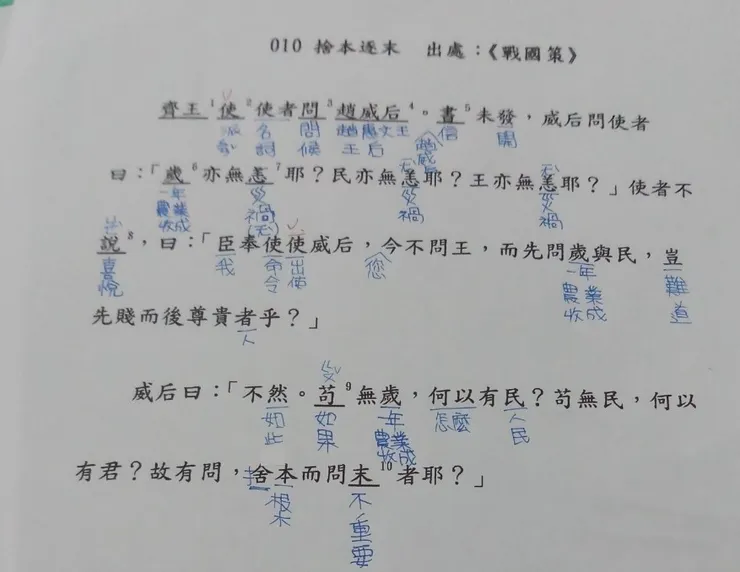 010 捨本逐末 出處：《戰國策》
齊王¹使²使者問³趙威后⁴。書⁵未發，威后問使者
派令 名詞 問候 趙惠文王王后 趙威后 信 開
曰：「歲⁶亦無恙⁷耶？民亦無恙耶？王亦無恙耶？」使者不
一年農業收成 災禍 災禍 災禍
說⁸，曰：「臣奉使使威后，今不問王，而先問歲與民，豈
喜悅 我 命令 出使 您 一年農業收成 難道
先賤而後尊貴者乎？」
人
威后曰：「不然。苟⁹無歲，何以有民？苟無民，何以
如此 如果 一年農業收成 怎麼 人民
有君？故有問，舍本而問末¹⁰者耶？」
根本 不重要